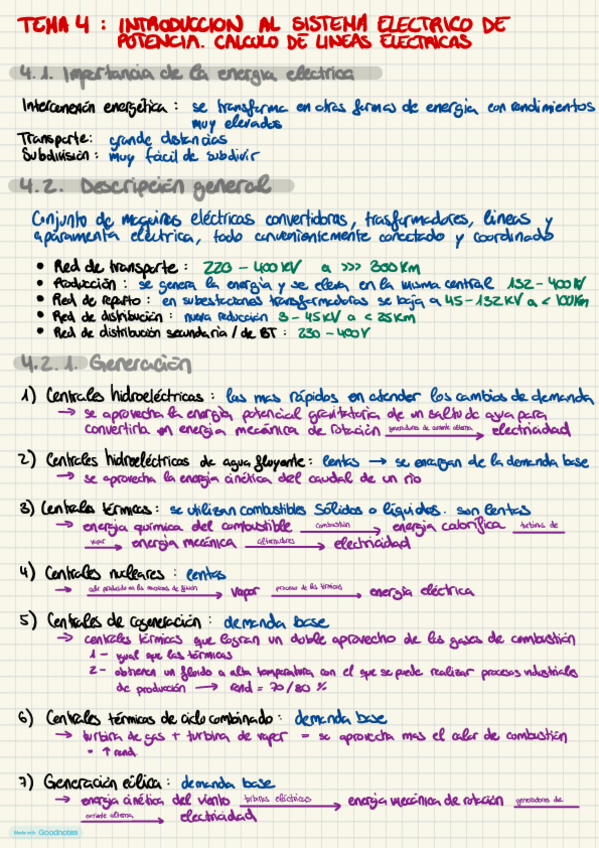 TEMA 4 : INTRODUCCION AL SISTEMA ELECTRICO DE
POTENCIA. CALCULO DE LINEAS ELECTRICAS
4.1. Importancia de la energia electrica
Interconexión energética : se transforma en otras formas de energia con rendimientos
muy elevados
Transporte: grande distancias
Subdivisión : muy fácil de subdivir
4.2. Descripción general
Conjunto de maquinas eléctricas convertidoras, trasformadores, lineas y
aparamenta electrica, todo convenientemente conectado y coordinado
• Red de transporte : 220 – 400 KV a >>> 300 Km
• Producción : se genera la energia y se eleva en la misma central 132 – 400 KV
• Red de reparto : en subestaciones transformadoras se baja a 45 – 132 KV a < 100 Km
• Red de distribución : nueva reducción 3 – 45 KV a < 25 Km
• Red de distribución secundaria / de BT : 230 – 400 V
4.2.1. Generación
1) Centrales hidroeléctricas : las mas rápidos en atender los cambios de demanda
→ se aprovecha la energia potencial gravitatoria de un salto de agua para
convertirla en energia mecánica de rotación generadores de corriente alterna → electricidad
2) Centrales hidroeléctricas de agua fluyente : lentas → se encargan de la demanda base
→ se aprovecha la energia cinética del caudal de un rio
3) Centrales térmicas : se utilizan combustibles sólidos o liquidos. son lentas
→ energia quimica del combustible combustión → energia calorifica turbinas de
vapor → energia mecánica alternadores → electricidad
4) Centrales nucleares : lentas
→ calor producido en las reacciones de fisión → vapor proceso de las térmicas → energia eléctrica
5) Centrales de cogeneración : demanda base
→ centrales térmicas que logran un doble aprovecho de los gases de combustión
1 – igual que las térmicas
2 – obtienen un fluido a alta temperatura con el que se puede realizar procesos industriales
de producción → rend = 70/80 %
6) Centrales térmicas de ciclo combinado : demanda base
→ turbina de gas + turbina de vapor = se aprovecha mas el calor de combustión
= ↑ rend
7) Generación eólica : demanda base
→ energia cinética del viento turbinas eléctricas → energia mecanica de rotación generadores de
corriente alterna → electricidad
Made with Goodnotes